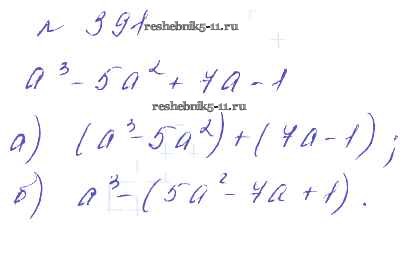 № 391
reshebnik5-11.ru
a³ - 5a² + 7a - 1
reshebnik5-11.ru
а) (a³ - 5a²) + (7a - 1);
б) a³ - (5a² - 7a + 1).